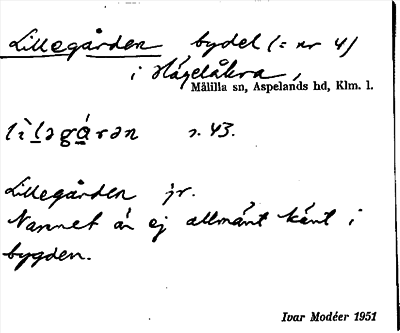 Lillegården bydel (= nr 4)
i Hägelåkra,
Målilla sn, Aspelands hd, Klm. l.
lìləgá̱rən s. 43.
Lillegården jr.
Namnet är ej allmänt känt i
bygden.
Ivar Modéer 1951